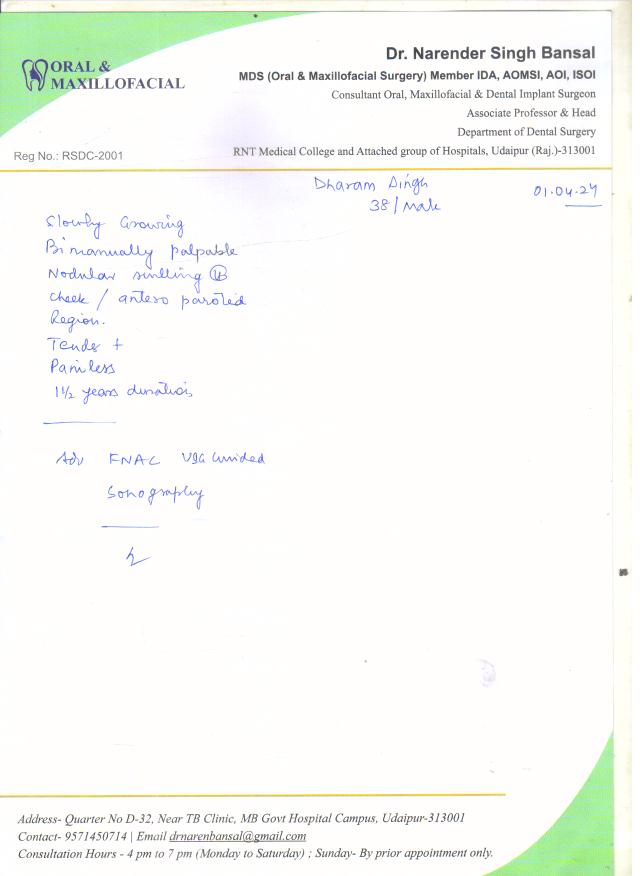 ORAL &
MAXILLOFACIAL
Dr. Narender Singh Bansal
MDS (Oral & Maxillofacial Surgery) Member IDA, AOMSI, AOI, ISOI
Consultant Oral, Maxillofacial & Dental Implant Surgeon
Associate Professor & Head
Department of Dental Surgery
Reg No.: RSDC-2001
RNT Medical College and Attached group of Hospitals, Udaipur (Raj.)-313001
Dharam Singh
38/Male
Slowly Growing
Bimanually palpable
Nodular swelling
cheek / antero parotid
Region.
Tender +
Painless
1 1/2 years duration
Adv FNAC USG Guided
Sonography
Address- Quarter No D-32, Near TB Clinic, MB Govt Hospital Campus, Udaipur-313001
Contact- 9571450714 | Email drnarenbansal@gmail.com
Consultation Hours - 4 pm to 7 pm (Monday to Saturday) ; Sunday- By prior appointment only.